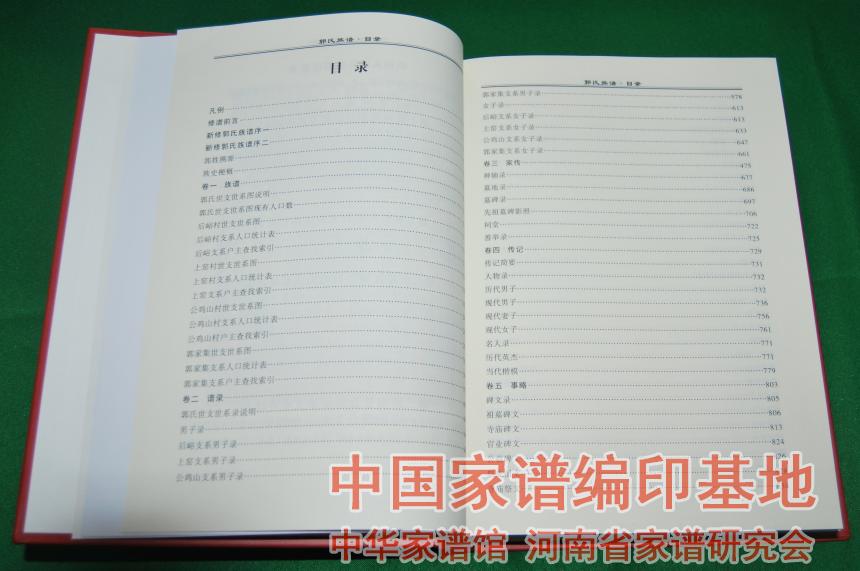 郭氏族谱·目录
目 录
凡例
修谱前言
新修郭氏族谱序一
新修郭氏族谱序二
郭姓溯源
族史梗概
卷一 族谱
郭氏世支世系图说明
郭氏世支世系图现有人口数
后峪村世支世系图
后峪村支系人口统计表
后峪支系户主查找索引
上窑村世支世系图
上窑村支系人口统计表
上窑支系户主查找索引
公鸡山村世支世系图
公鸡山村支系人口统计表
公鸡山村户主查找索引
郭家集世支世系图
郭家集支系人口统计表
郭家集支系户主查找索引
卷二 谱录
郭氏世支世系录说明
男子录
后峪支系男子录
上窑支系男子录
公鸡山支系男子录
郭氏族谱·目录
郭家集支系男子录 578
女子录 613
后峪支系女子录 613
上窑支系女子录 633
公鸡山支系女子录 647
郭家集支系女子录 661
卷三 家传 475
种轴录 677
墓地录 686
墓碑录 697
先祖墓碑影照 706
祠堂 722
善举录 725
卷四 传记 729
传记简要 731
人物录 732
历代男子 732
现代男子 736
现代妻子 756
现代女子 761
名人录 771
历代英杰 771
当代楷模 779
卷五 事略 803
碑文录 805
祖墓碑文 806
寺庙碑文 813
官业碑文 824
中国家谱编印基地
中华家谱馆 河南省家谱研究会